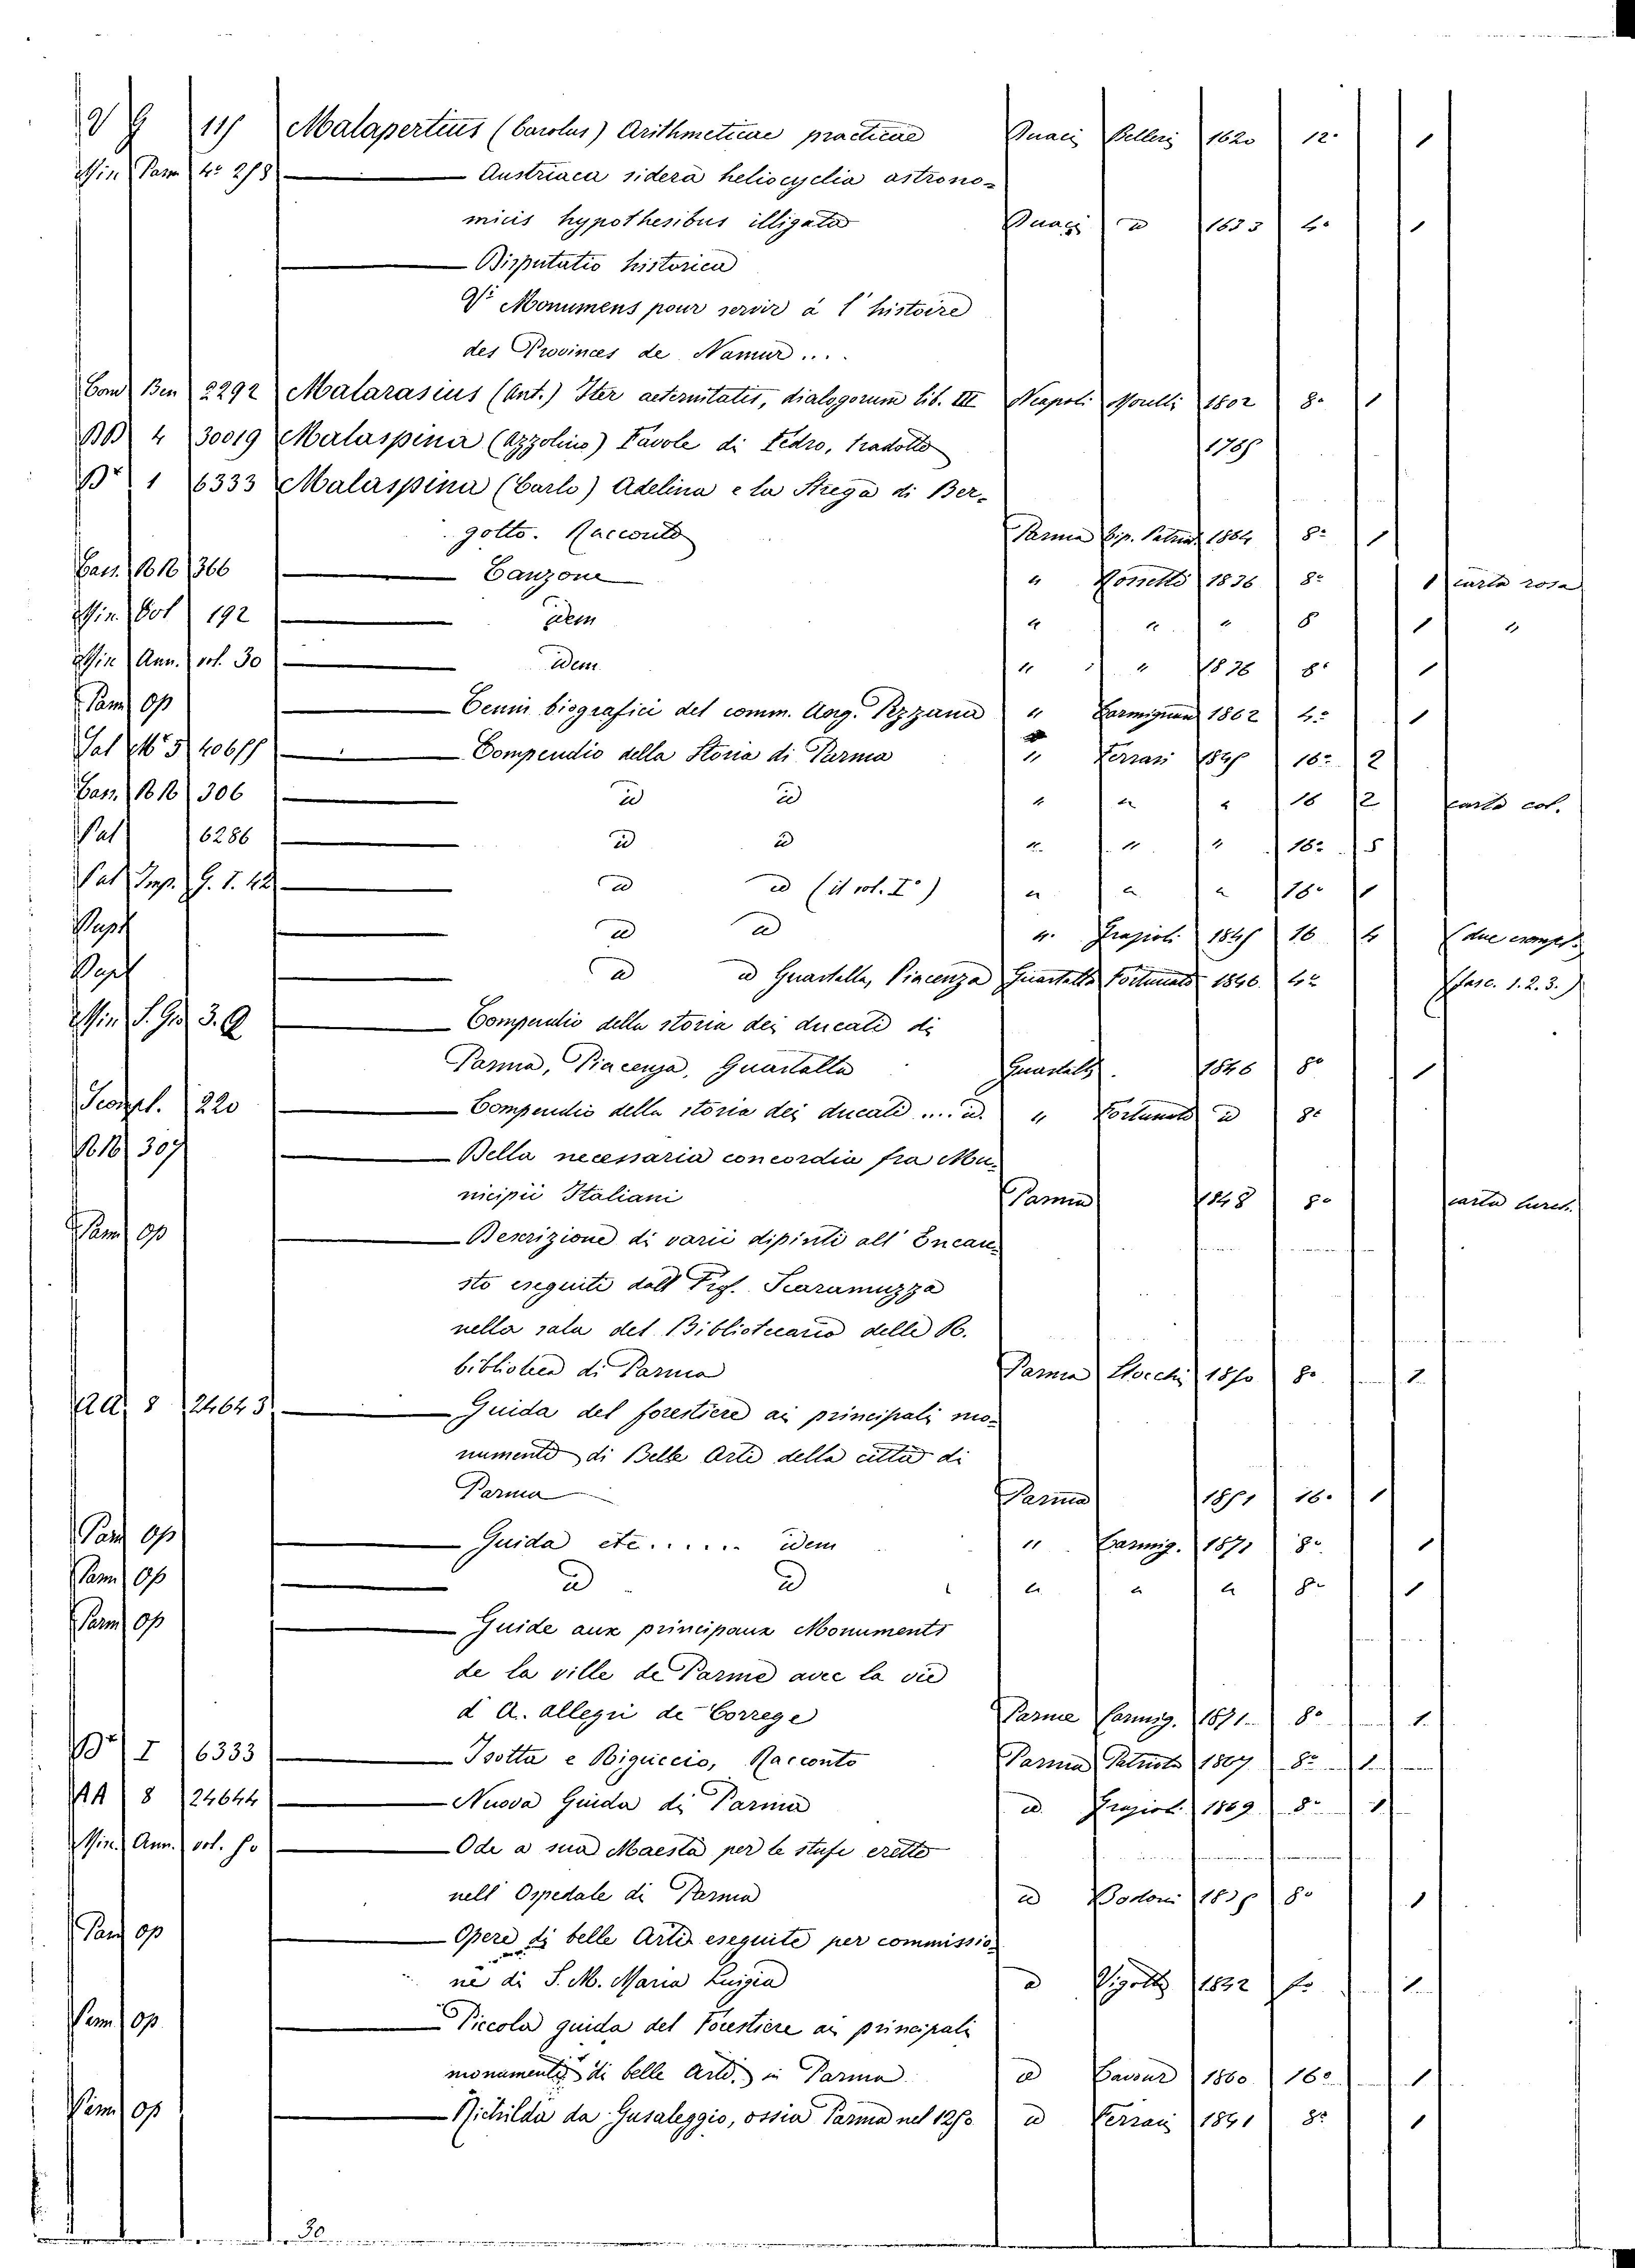 V G 115 Malapertius (Carolus) Arithmeticae practicae Duaci Belleri 1620 12° 1
Min Parm 4° 278 Austriaca sidera heliocyclia astrono-
micis hypothesibus illigata Duaci id 1633 4° 1
Disputatio historica
V. Monumens pour servir à l'histoire
des Provinces de Namur ....
Bon Ben 2292 Malarasius (Ant.) Iter aeternitatis, dialogorum lib. III Neapoli Morelli 1802 8° 1
BB 4 30019 Malaspina (Azzolino) Favole di Fedro, tradotto
Br 1 6333 Malaspina (Carlo) Adelina e la Strega di Ber-
gotto. Racconto Parma Tip. Patriot. 1864 8° 1
Cass. BB 366 Canzone " Rossetti 1836 8° 1 carta rosa
Min. Bol 192 idem " " " 8 1 "
Min Ann. vol. 30 idem " " 1836 8° 1
Parm Op Cenni biografici del comm. Ang. Pezzana " Carmignani 1862 4° 1
Sal M. 5 Compendio della Storia di Parma " Ferrari 16° 2
Cass. BB 306 id id " " " 16 2 carta col.
Pal 6286 id id " " " 16° 5
Pal Imp. G. I. 42 id id (il vol. I°) " " " 1
id id " Grazioli 16 4 (due esempl.
id id Guastalla, Piacenza Guastalla Fortunati 1846 4° (fasc. 1. 2. 3.)
Min S. Gr 3. Q Compendio della storia dei ducati di
Parma, Piacenza, Guastalla Guastalla 1846 8° 1
220 Compendio della storia dei ducati .... id. " Fortunati id 8°
BB 307 Della necessaria concordia fra Mu-
nicipii Italiani Parma 1848 8° carta turch.
Parm Op Descrizione di varii dipinti all' Encau-
sto eseguiti dall Prof. Scaramuzza
nella sala del Bibliotecario della R.
biblioteca di Parma Parma Stocchi 1870 8° 1
AA 8 24643 Guida del forestiere ai principali mo-
numenti di Belle Arti della città di
Parma Parma 1871 16° 1
Parm Op Guida etc....... idem " Carmig. 1871 8° 1
Parm Op id id " " " 8° 1
Parm Op Guide aux principaux Monuments
de la ville de Parme avec la vie
d A. Allegri de Correge Parme Carmig. 1871 8° 1
Br I 6333 Isotta e Biguccio, Racconto Parma Patriota 1867 8° 1
AA 8 24644 Nuova Guida di Parma id. Grazioli 1869 8° 1
Min. Ann. vol. Ode a sua Maestà per le stufe erette
nell' Ospedale di Parma id Bodoni 8° 1
Parm Op Opere di belle Arti eseguite per commissio-
ne di S. M. Maria Luigia id 1832 1
Parm Op Piccola guida del Forestiere ai principali
monumenti di belle Arti, in Parma id Cavour 1860 16° 1
Parm Op Richilda da Gusaleggio, ossia Parma nel 1250 id Ferrari 1841 8° 1
30